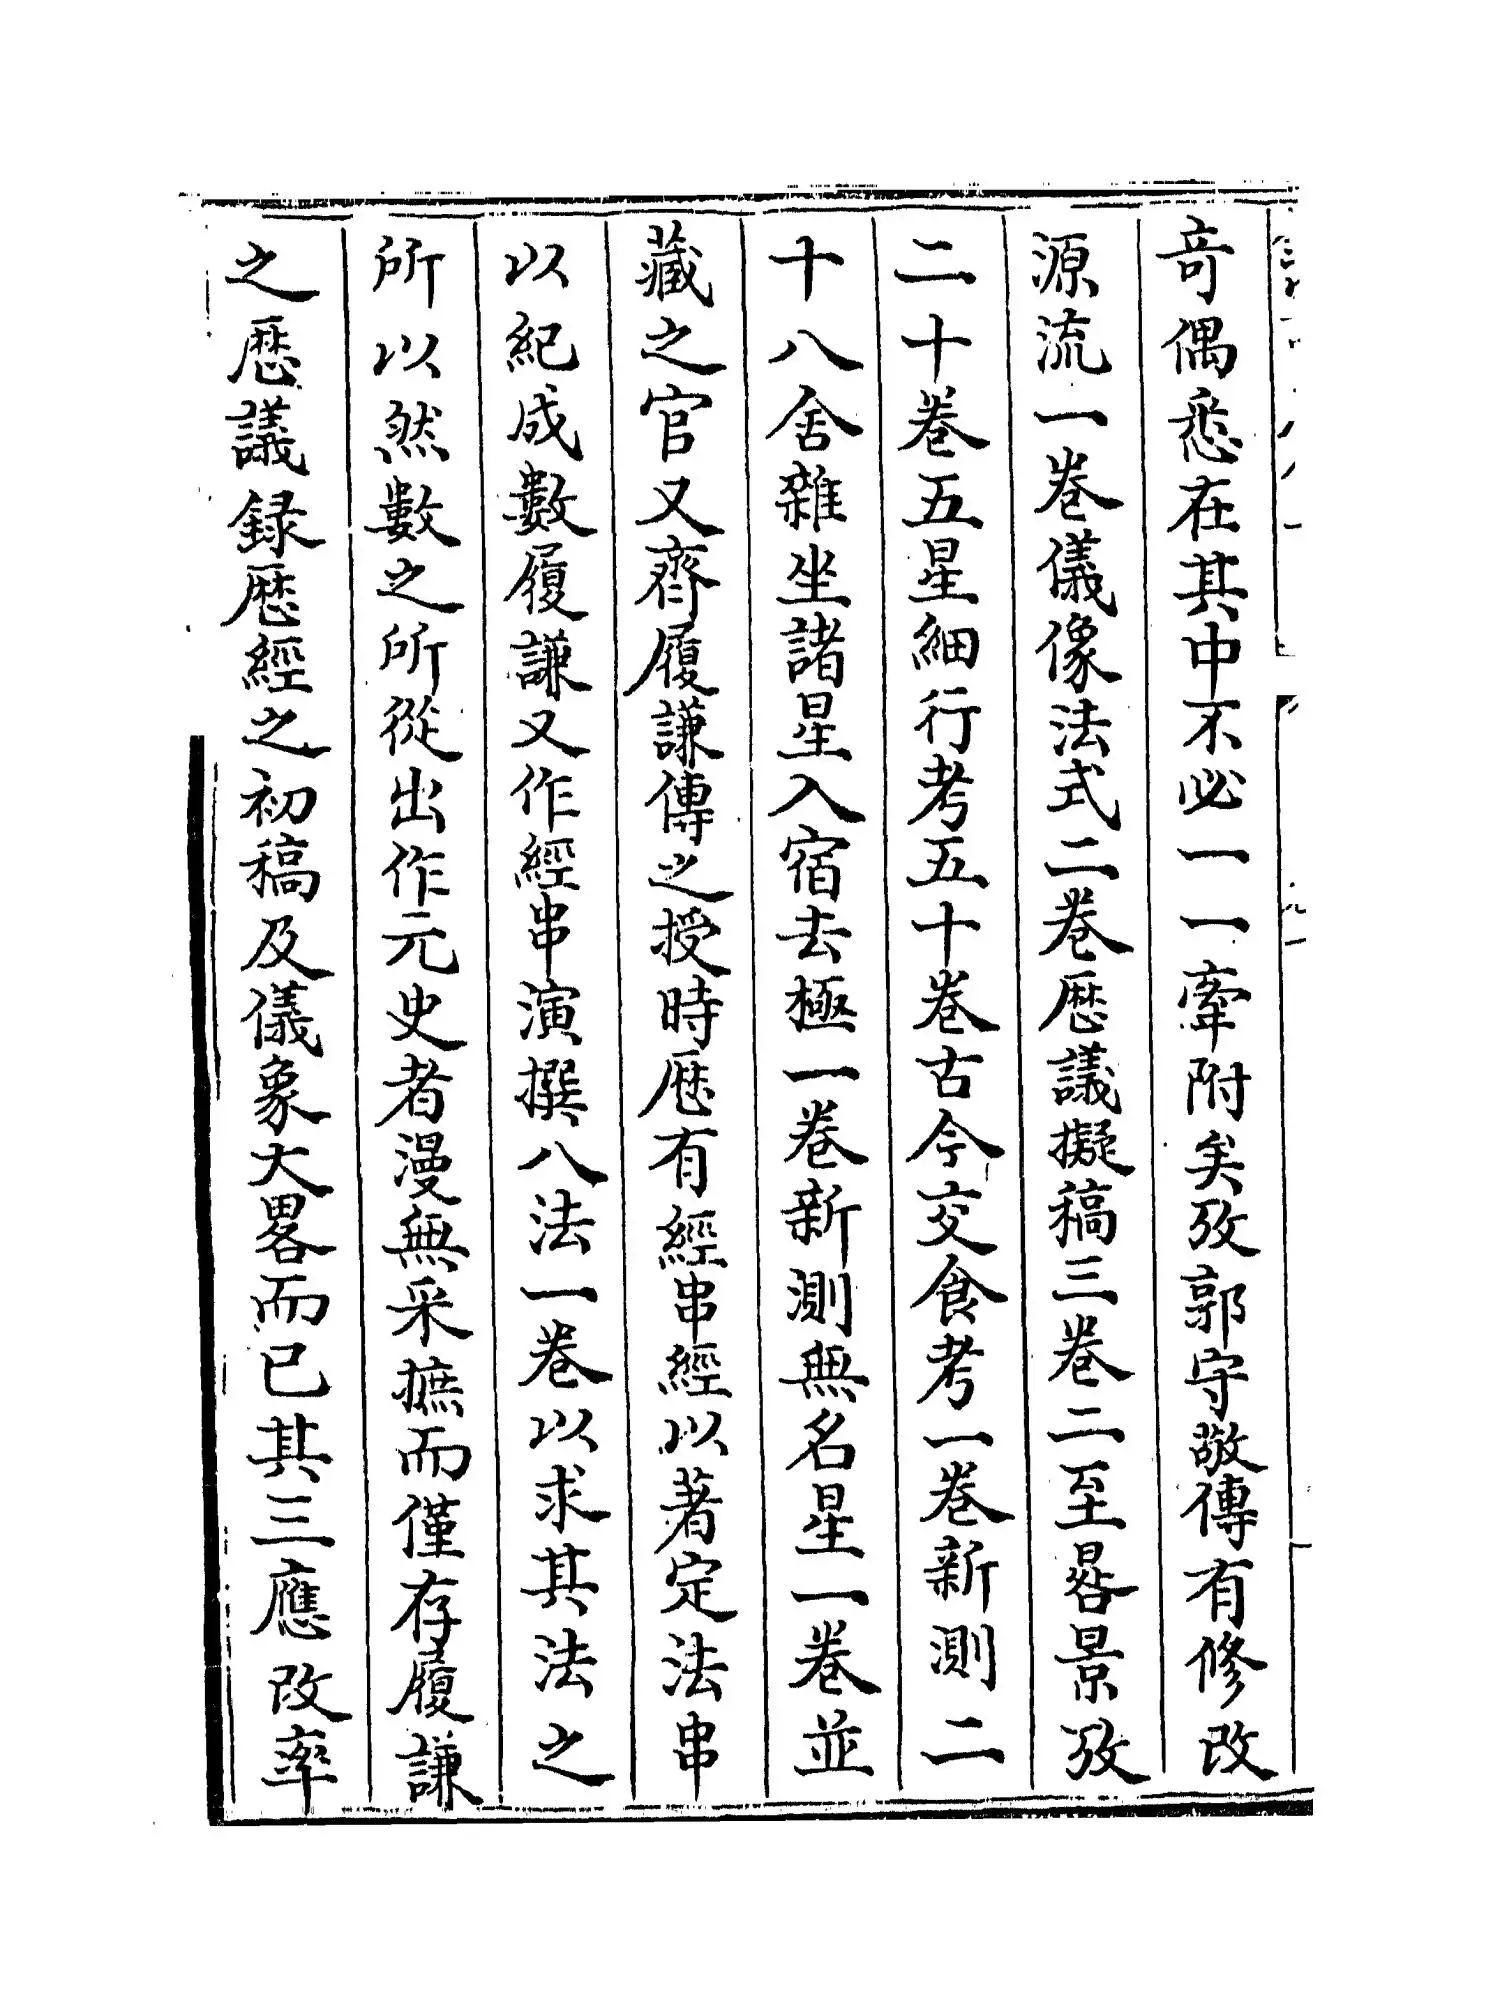 竒偶悉在其中不必一一牽附矣攷郭守敬傳有修改
源流一卷儀像法式二卷厯議擬稿三卷二至晷景攷
二十卷五星細行考五十卷古今交食考一卷新測二
十八舍雜坐諸星入宿去極一卷新測無名星一卷並
藏之官又齊履謙傳之授時厯有經串經以著定法串
以紀成數履謙又作經串演撰八法一卷以求其法之
所以然數之所從出作元史者漫無采摭而僅存履謙
之厯議録厯經之初稿及儀象大畧而已其三應改率